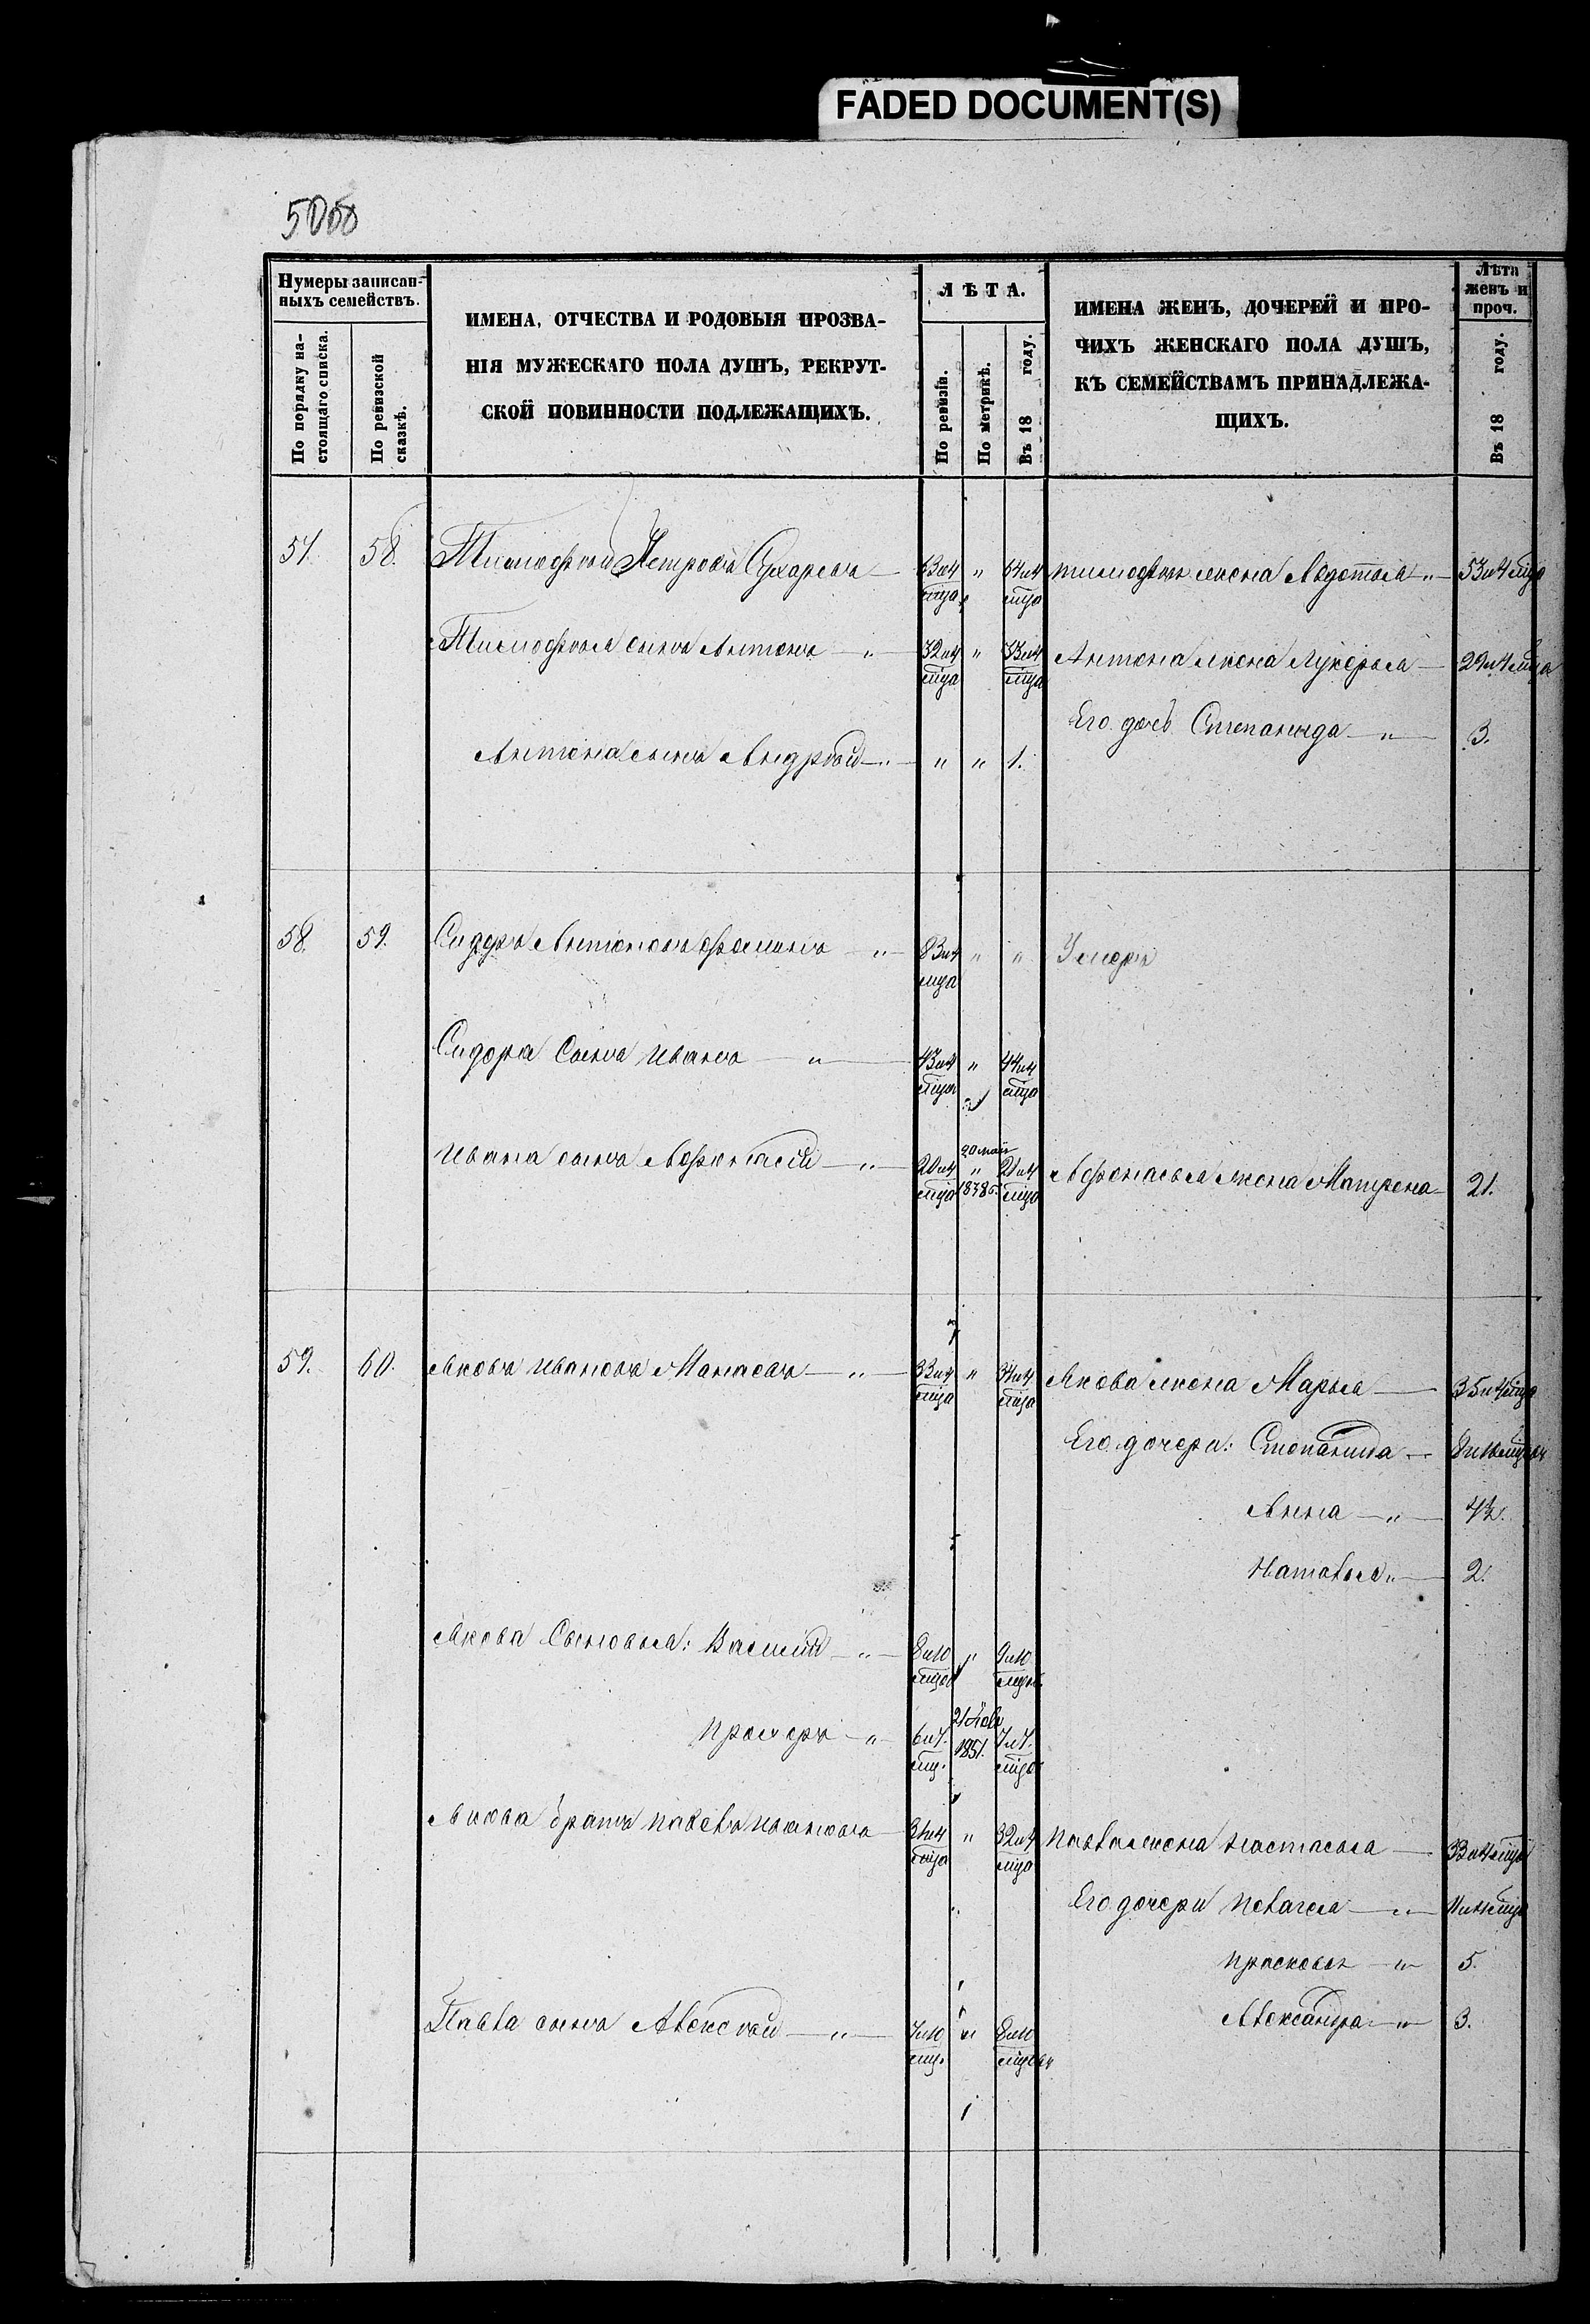 FADED DOCUMENT(S)
Нумеры записан-
ныхъ семействъ.
По порядку на-
стоящаго списка.
По ревизской
сказкѣ.
ИМЕНА, ОТЧЕСТВА И РОДОВЫЯ ПРОЗВА-
НІЯ МУЖЕСКАГО ПОЛА ДУШЪ, РЕКРУТ-
СКОЙ ПОВИННОСТИ ПОДЛЕЖАЩИХЪ.
ЛѢТА.
По ревизіи.
По метрикѣ.
Въ 18 году.
ИМЕНА ЖЕНЪ, ДОЧЕРЕЙ И ПРО-
ЧИХЪ ЖЕНСКАГО ПОЛА ДУШЪ,
КЪ СЕМЕЙСТВАМЪ ПРИНАДЛЕЖА-
ЩИХЪ.
Лѣта
женъ и
проч.
Въ 18 году.
57. 58. Тимофѣй Петровъ Сухаревъ — 63 и 4 мца " 64 и 4 мца Тимофѣя жена Авдотья " — 53 и 4 мца
Тимофѣя сынъ Антонъ — " 32 и 4 мца " 33 и 4 мца Антона жена Лукерья — 29 и 4 мца
Его дочь Степанида — " — 3.
Антона сынъ Андрѣй — " — " " 1.
58. 59. Сидоръ Антоновъ Фоминъ — " — 83 и 4 мца " " Умеръ
Сидора сынъ Иванъ — " — 43 и 4 мца " 44 и 4 мца
Ивана сынъ Афонасій — " — 20 и 4 мца 20 май " 1838 21 и 4 мца Афонасья жена Матрена — 21.
59. 60. Яковъ Ивановъ — " — 33 и 4 мца " 34 и 4 мца Якова жена Марья — 35 и 4 мца
Его дочери: Степанида —
Анна — " —
Наталья " — 2.
Якова сыновья: Василій — " — 8 и 10 " 9 и 10
Прохоръ — " 6 и 7. мц. 1851. 7 и 7.
Якова братъ Павелъ Ивановъ — 31 и 4 мца " 32 и 4 мца Павла жена Настасья — 33 и 4 мца
Его дочери Пелагея — " —
Прасковья — " — 5.
Александра — " — 3.
Павла сынъ Алексѣй — " — 7 и 10 мц. " 8 и 10